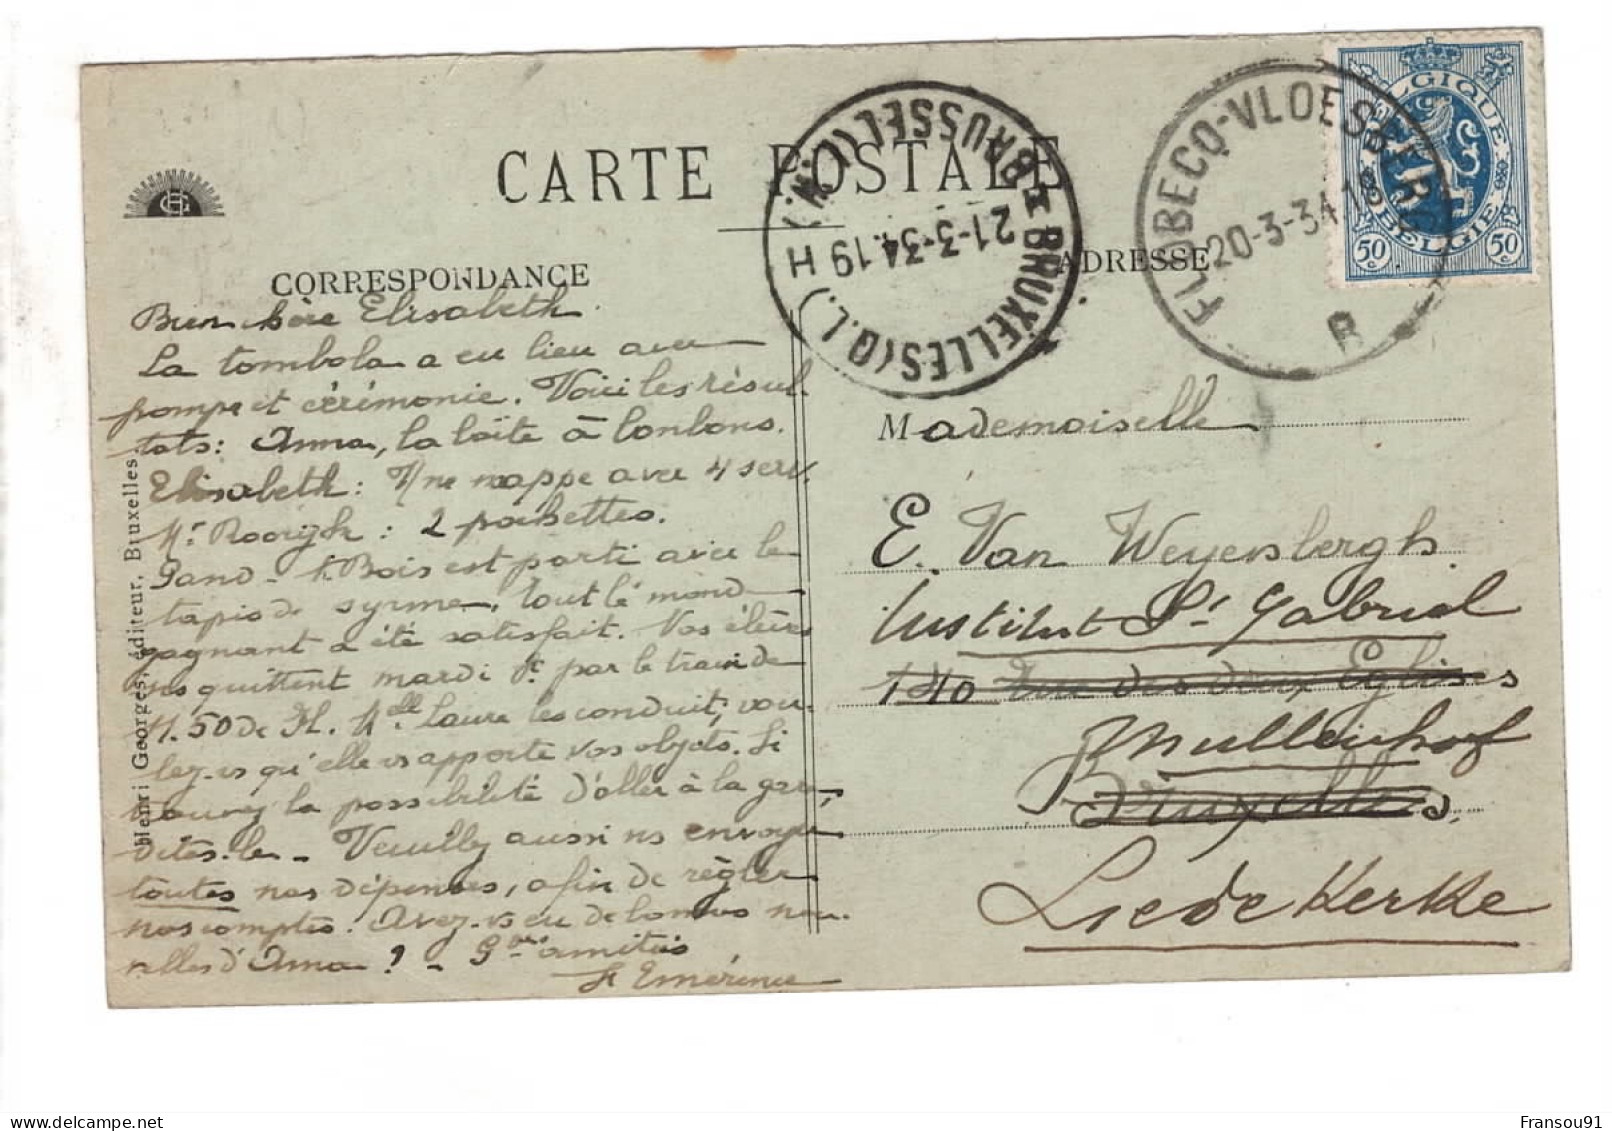 CARTE POSTALE
CORRESPONDANCE
ADRESSE
HG
Henri Georges, éditeur, Bruxelles.
BELGIQUE
BELGIE
50 c
50 c
FLOBECQ-VLOESBERG
20-3-34 18
B
BRUXELLES (Q.L.)
BRUSSEL (L.W.)
21-3-34.19 H
Bien chère Elisabeth.
La tombola a eu lieu avec
pompe et cérémonie. Voici les résul-
tats: Anna, la boîte à bonbons.
Elisabeth: Une nappe avec 4 serv.
Mr Rooryck: 2 pochettes.
Gand - Bois est parti avec le
tapis de smyrne. tout le monde
gagnant a été satisfait. Vos élèves
ns quittent mardi pr par le train de
11.50 de Fl. Melle Laure les conduit; vou-
lez-vs qu'elle vs apporte vos objets. Si
trouvez la possibilité d'aller à la gare,
dites-le - Veuillez aussi ns envoyer
toutes nos dépenses, afin de régler
nos comptes. Avez-vs eu de bonnes nou-
velles d'Anna? - Gdes amitiés
Sr Emérence
Mademoiselle
E. Van Weyersbergh
Institut St Gabriel
140 rue des deux Eglises
Mullenhof
Bruxelles.
Liedekerke
Fransou91